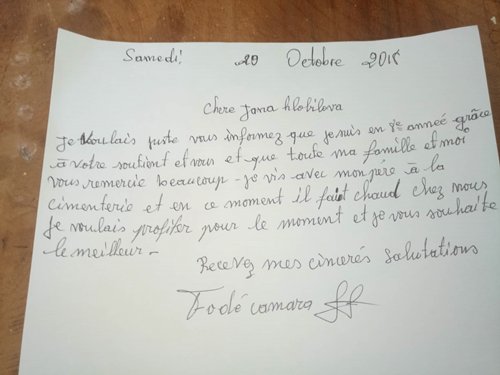 Samedi 20 Octobre 201
Chere Jana Hlobilova
Je voulais juste vous informez que je suis en 8e anneé grâce
à votre soutient et vous et que toute ma famille et moi
vous remercie beaucoup - je vis avec mon pére à la
cimenterie et en ce moment il fait chaud chez nous
Je voulais profiter pour le moment et je vous souhaite
le meilleur -
Recevez mes cincerés salutations
Fodé camara